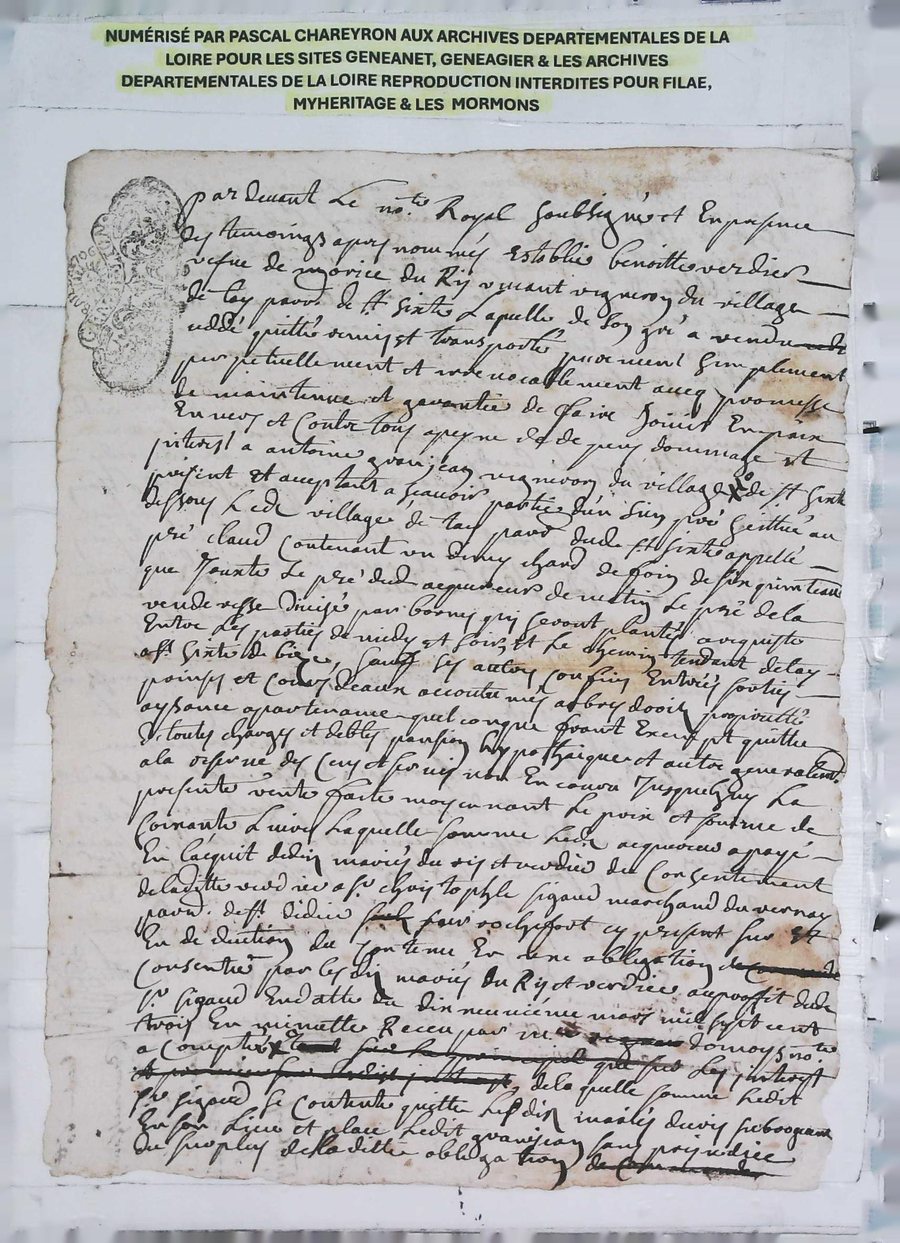 NUMÉRISÉ PAR PASCAL CHAREYRON AUX ARCHIVES DEPARTEMENTALES DE LA
LOIRE POUR LES SITES GENEANET, GENEAGIER & LES ARCHIVES
DEPARTEMENTALES DE LA LOIRE REPRODUCTION INTERDITES POUR FILAE,
MYHERITAGE & LES MORMONS
par devant Le no.re Royal soubsigné et En presence
des temoings apres nommés Establie benoitte verdier
vefue de morice du Ris vivant vigneron du village
de lay parr. de st sixte Laquelle de son gré a vendu
ceddé quitté remis et transporté purement simplement
perpetuellement et irrevocablement avecq promesse
de maintenue et garantie de faire Jouir En paix
Envers et Contre tous a peyne de de pens dommage et
interest a antoine granjean vigneron du village de st sixte
present et acceptant a scavoir partie d'un sien pré scittué au
dessous Ledt village de lay parr dudt st sixte appellé
pré claud Contenant un demy chard de foin de six quinteaux
que Jouxte Le pré dudt acquereur de matin Le pré de la
venderesse divisé par bornes qui seront plantés
Entre Les parties de midy et soir, et Le chemin tendant de lay
a st sixte de bize, sauf ses autres confins Entrées sorties
prinses et Cours d'eaux accoutumés arbres droits proprietté
aysance apartenance quelconque franc Exempt quitte
de toutes charges et debtes pansion hypothaique et autre generalement
a la reserve des Cens et servis non Encourus Jusques icy La
presente vente faite moyennant Le prix et somme de
Laquelle somme Ledt acquereur a payé
En l'acquit desdits mariés du ris et verdier du Consentement
de laditte verdier a sr christophle sigaud marchand du vernay
parr. de st didier sur rochefort cy present sur Et
En de duction du Contenu En une obligation
Consentie par lesdits mariés du Ris et verdier au proffit dudt
sr sigaud En datte du dix neuvième mars mil sept cent
trois En minutte Receu par me no.re
a Compte de laquelle somme Ledit
sr sigaud se Contente quitte Lesdits mariés du ris subrogeant
En son Lieu et place Ledit granjean sans prejudice
du surplus de laditte obligation